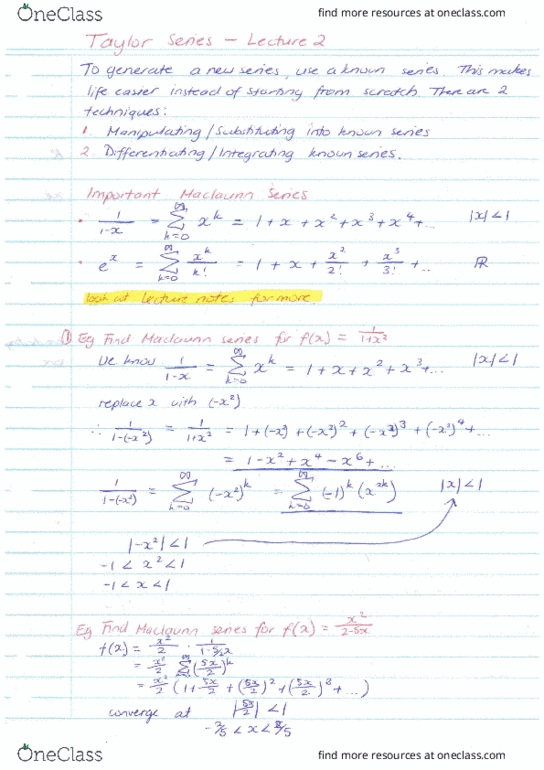 OneClass
find more resources at oneclass.com
Taylor Series – Lecture 2
To generate a new series, use a known series. This makes
life easier instead of starting from scratch. There are 2
techniques:
1. Manipulating/Substituting into known series
2. Differentiating/Integrating known series.
Important Maclaurin Series
• 1/(1-x) = ∞Σk=0 x^k = 1 + x + x² + x³ + x⁴ + .. |x|<1
• e^x = ∞Σk=0 x^k/k! = 1 + x + x²/2! + x³/3! + .. ℝ
look at lecture notes for more.
① Eg Find Maclaurin series for f(x) = 1/(1+x²)
We know 1/(1-x) = ∞Σk=0 x^k = 1 + x + x² + x³ + ... |x|<1
replace x with (-x²)
∴ 1/(1-(-x²)) = 1/(1+x²) = 1 + (-x²) + (-x²)² + (-x²)³ + (-x²)⁴ + ...
= 1 - x² + x⁴ - x⁶ + ...
1/(1-(-x²)) = ∞Σk=0 (-x²)^k = ∞Σk=0 (-1)^k (x^2k) |x|<1
|-x²| < 1
-1 < x² < 1
-1 < x < 1
Eg Find Maclaurin series for f(x) = x²/(2-5x)
f(x) = x²/2 · 1/(1-5/2x)
= x²/2 ∞Σ (5x/2)^k
= x²/2 (1 + 5x/2 + (5x/2)² + (5x/2)³ + ...)
converge at |5x/2| < 1
-2/5 < x < 2/5
OneClass
find more resources at oneclass.com